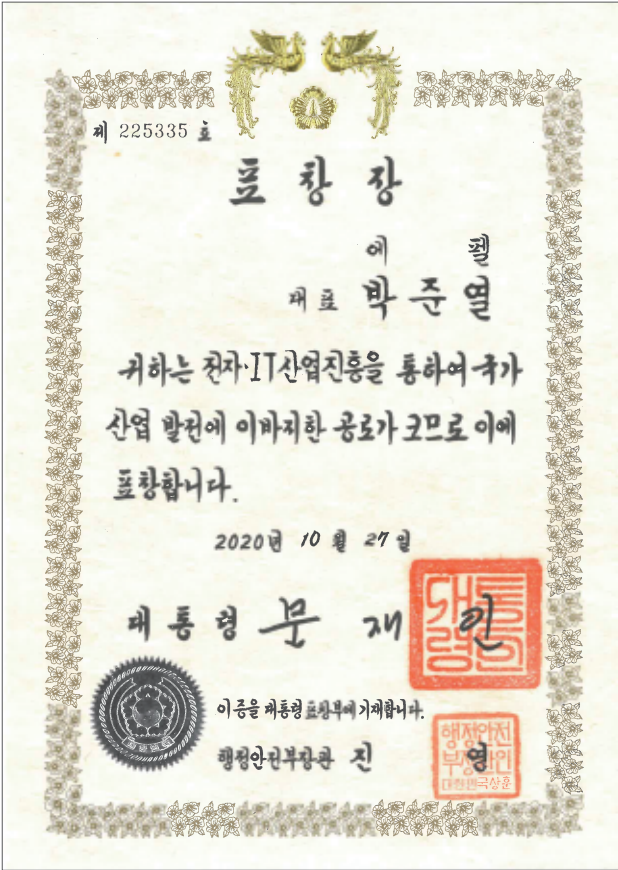 제 225335 호
표 창 장
에 펠
대표 박 준 열
귀하는 전자·IT산업진흥을 통하여 국가
산업 발전에 이바지한 공로가 크므로 이에
표창합니다.
2020년 10 월 27 일
대 통 령 문 재 인
이증을 대통령 표창부에 기재합니다.
행정안전부장관 진 영